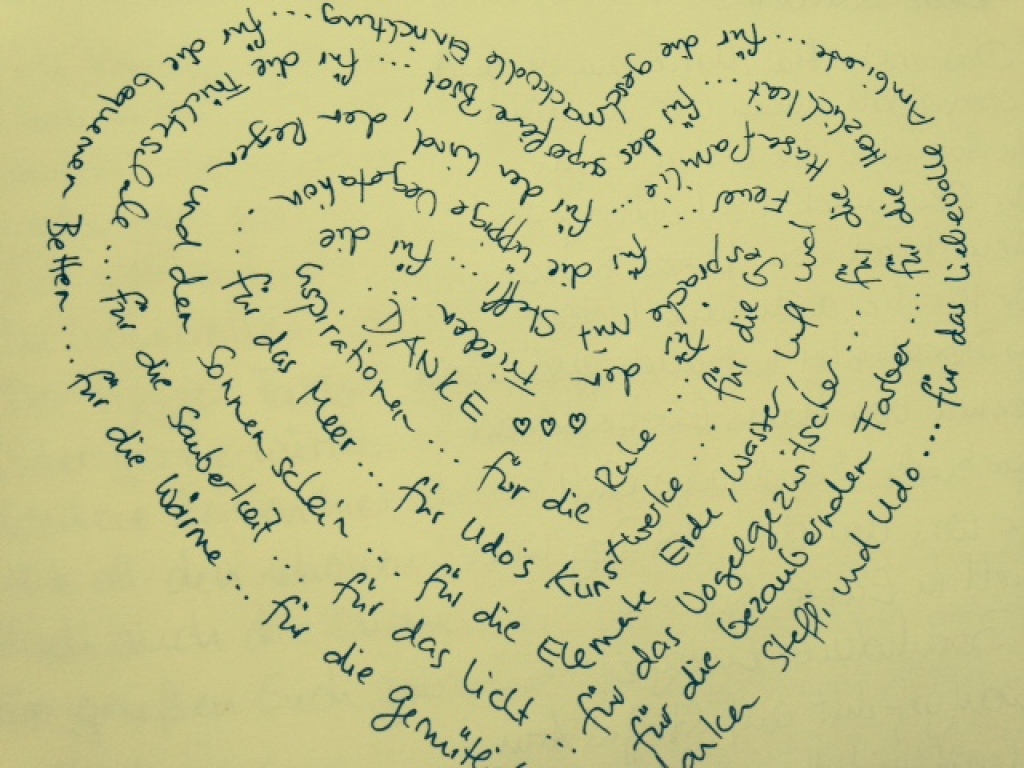 anken Steffi und Udo... für das liebevolle Ambiente... für die geschmackvolle Einrichtung... für die bequemen Betten... für die Wärme... für die gemütli
für die bezaubernden Farben... für die Herzlichkeit... für das superfeine Brot... für die Früchteschale... für die Sauberkeit... für das Licht...
für das Vogelgezwitscher... für die Hasefamilie... für den Wind, den Regen und den Sonnenschein... für die Elemente Erde, Wasser, Luft und Feuer...
für die üppige Vegetation... für das Meer... für Udo's Kunstwerke... für die Gespräche mit Steffi... für die Inspirationen... für die Ruhe... für den Frieden...
DANKE ♡♡♡